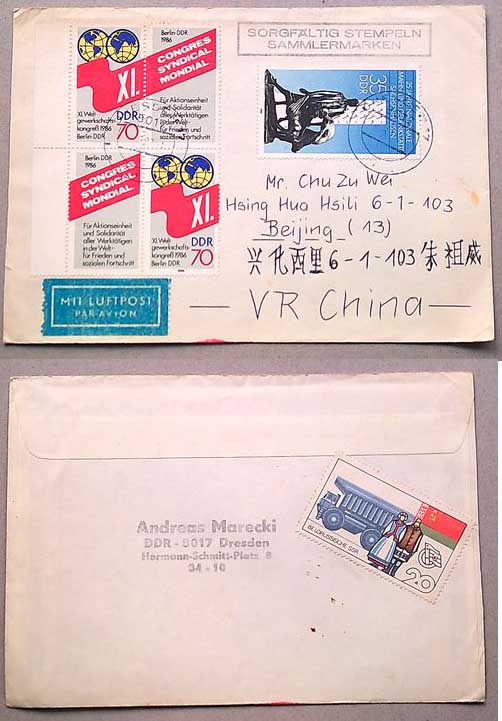 SORGFÄLTIG STEMPELN
SAMMLERMARKEN
XI.
XI. Welt-
gewerkschafts-
kongreß 1986
Berlin DDR
DDR
70
Berlin-DDR
1986
CONGRES
SYNDICAL
MONDIAL
Für Aktionseinheit
und Solidarität
aller Werktätigen
in der Welt -
für Frieden und
sozialen Fortschritt
35
DDR
Berlin-DDR
1986
CONGRES
SYNDICAL
MONDIAL
Für Aktionseinheit
und Solidarität
aller Werktätigen
in der Welt -
für Frieden und
sozialen Fortschritt
XI.
XI. Welt-
gewerkschafts-
kongreß 1986
Berlin DDR
DDR
70
Mr. Chu Zu Wei
Hsing Hua Hsili 6-1-103
Beijing (13)
兴化西里6-1-103朱祖威
VR China
MIT LUFTPOST
PAR AVION
Andreas Marecki
DDR - 8017 Dresden
Hermann-Schmitt-Platz 8
34 - 10
BELORUSSISCHE SSR
DDR
20